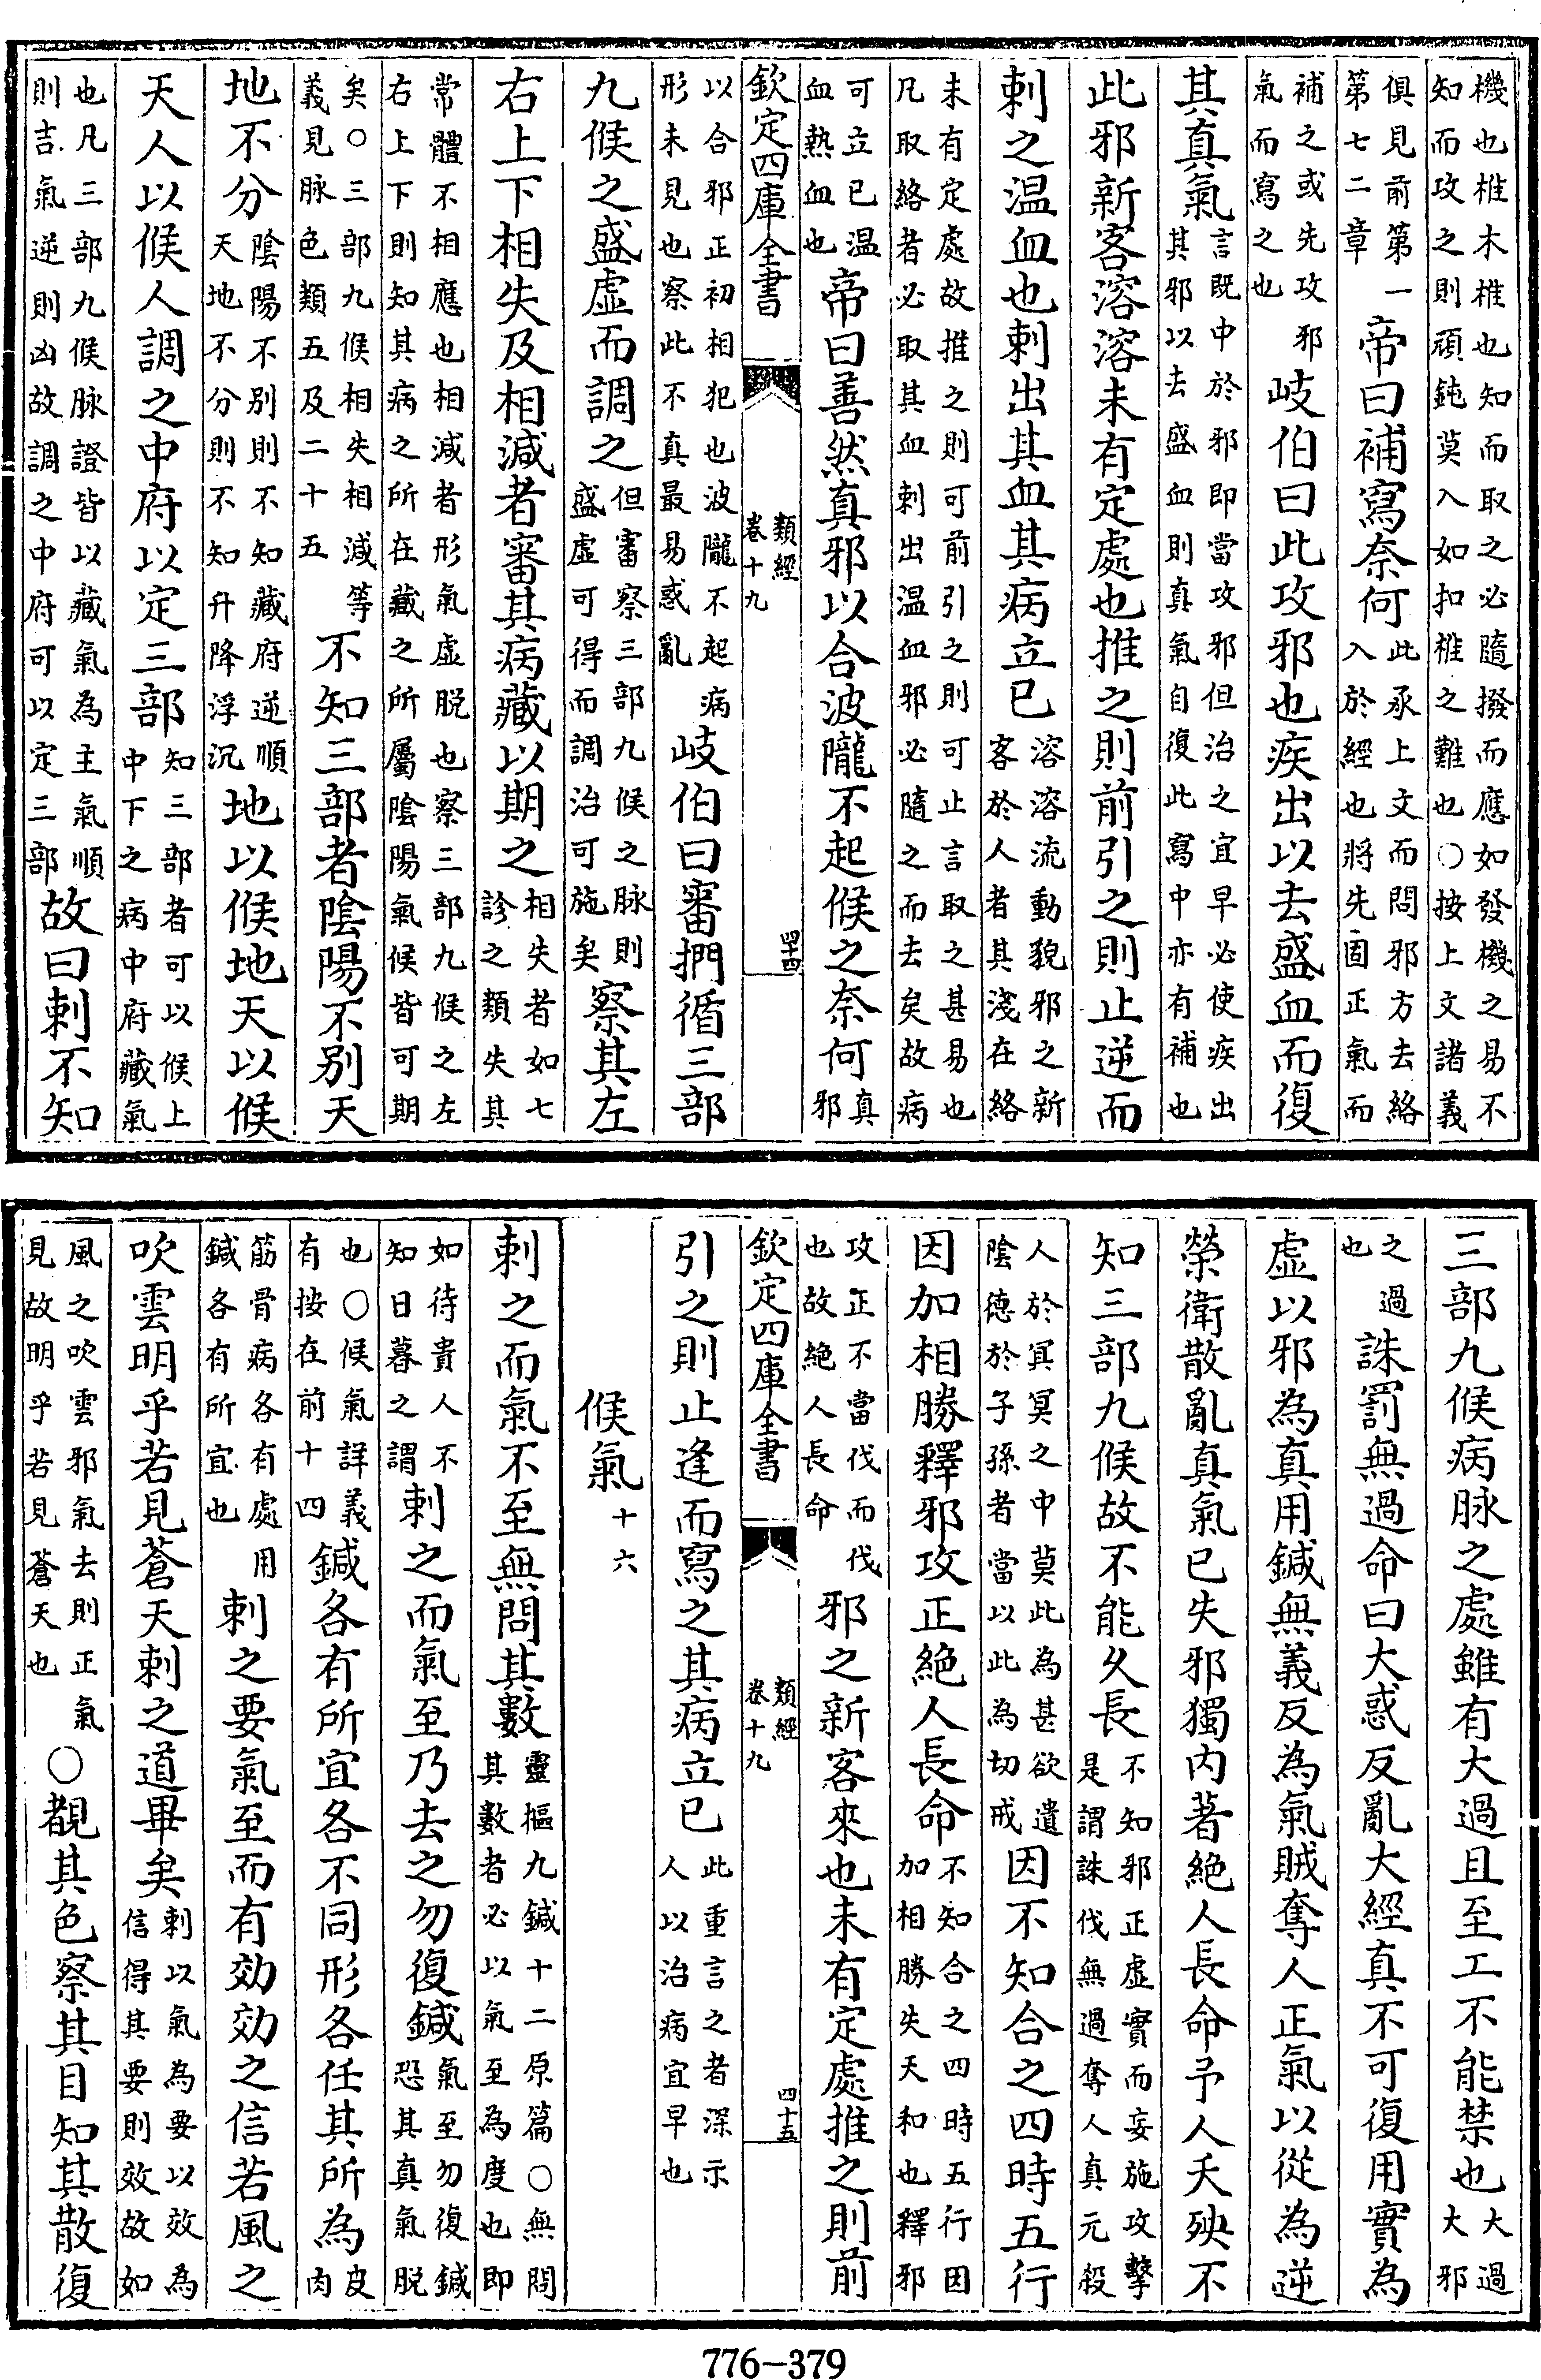 機也椎木椎也知而取之必隨撥而應如發機之易不
知而攻之則頑鈍莫入如扣椎之難也○按上文諸義
俱見前第一
第七二章
帝曰補寫奈何
此承上文而問邪方去絡
入於經也將先固正氣而
補之或先攻邪
氣而寫之也
岐伯曰此攻邪也疾出以去盛血而復
其真氣
言既中於邪即當攻邪但治之宜早必使疾出
其邪以去盛血則真氣自復此寫中亦有補也
此邪新客溶溶未有定處也推之則前引之則止逆而
刺之温血也刺出其血其病立已
溶溶流動貌邪之新
客於人者其淺在絡
未有定處故推之則可前引之則可止言取之甚易也
凡取絡者必取其血刺出温血邪必隨之而去矣故病
可立已温
血熱血也
帝曰善然真邪以合波隴不起候之奈何
真
邪
欽定四庫全書
類經
卷十九
四十四
以合邪正初相犯也波隴不起病
形未見也察此不真最易惑亂
岐伯曰審捫循三部
九候之盛虛而調之
但審察三部九候之脉則
盛虛可得而調治可施矣
察其左
右上下相失及相減者審其病藏以期之
相失者如七
診之類失其
常體不相應也相減者形氣虛脱也察三部九候之左
右上下則知其病之所在藏之所屬隂陽氣候皆可期
矣○三部九候相失相減等
義見脉色類五及二十五
不知三部者隂陽不别天
地不分
隂陽不别則不知藏府逆順
天地不分則不知升降浮沉
地以候地天以候
天人以候人調之中府以定三部
知三部者可以候上
中下之病中府藏氣
也凡三部九候脉證皆以藏氣為主氣順
則吉氣逆則凶故調之中府可以定三部
故曰刺不知
三部九候病脉之處雖有大過且至工不能禁也
大過
大邪
之過
也
誅罰無過命曰大惑反亂大經真不可復用實為
虛以邪為真用鍼無義反為氣賊奪人正氣以從為逆
榮衛散亂真氣已失邪獨内著絶人長命予人夭殃不
知三部九候故不能久長
不知邪正虛實而妄施攻擊
是謂誅伐無過奪人真元殺
人於冥冥之中莫此為甚欲遺
隂德於子孫者當以此為切戒
因不知合之四時五行
因加相勝釋邪攻正絶人長命
不知合之四時五行因
加相勝失天和也釋邪
攻正不當伐而伐
也故絶人長命
邪之新客來也未有定處推之則前
欽定四庫全書
類經
卷十九
四十五
引之則止逢而寫之其病立已
此重言之者深示
人以治病宜早也
候氣
十六
刺之而氣不至無問其數
靈樞九鍼十二原篇○無問
其數者必以氣至為度也即
如待貴人不
知日暮之謂
刺之而氣至乃去之勿復鍼
氣至勿復鍼
恐其真氣脱
也○候氣詳義
有按在前十四
鍼各有所宜各不同形各任其所為
皮
肉
筋骨病各有處用
鍼各有所宜也
刺之要氣至而有効効之信若風之
吹雲明乎若見蒼天刺之道畢矣
刺以氣為要以效為
信得其要則效故如
風之吹雲邪氣去則正氣
見故明乎若見蒼天也
○覩其色察其目知其散復
776-379